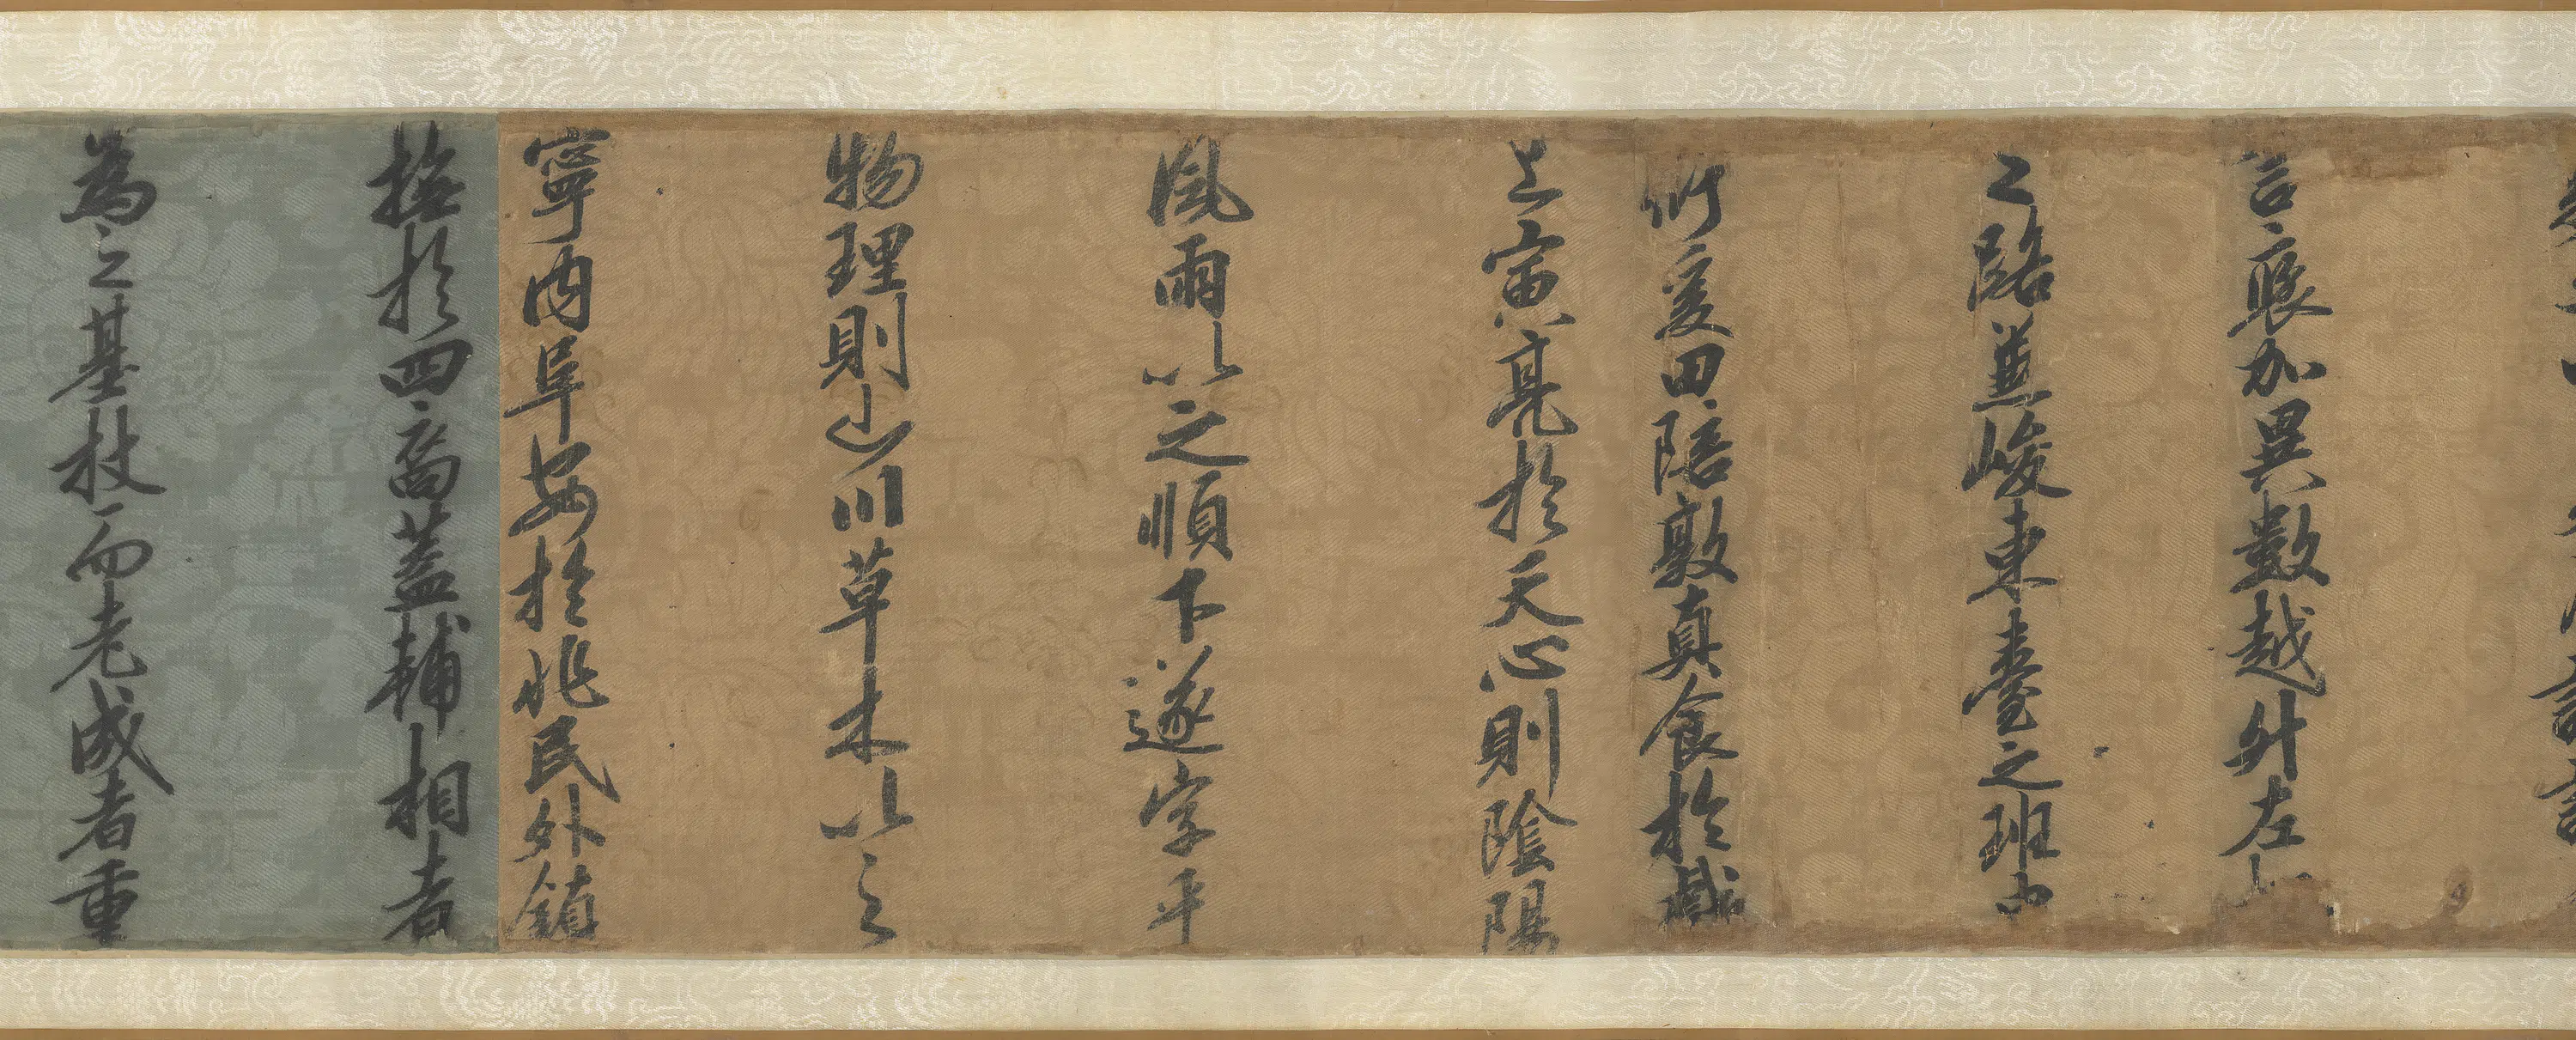 言褒加異數越升左
之路並峻東臺之班
衍爰田陪敦真食於戲
上寅亮於天心則陰陽
風雨以之順下遂字平
物理則山川草木以之
寧內阜安於兆民外鎮
撫於四裔蓋輔相者
為之基杖而老成者重